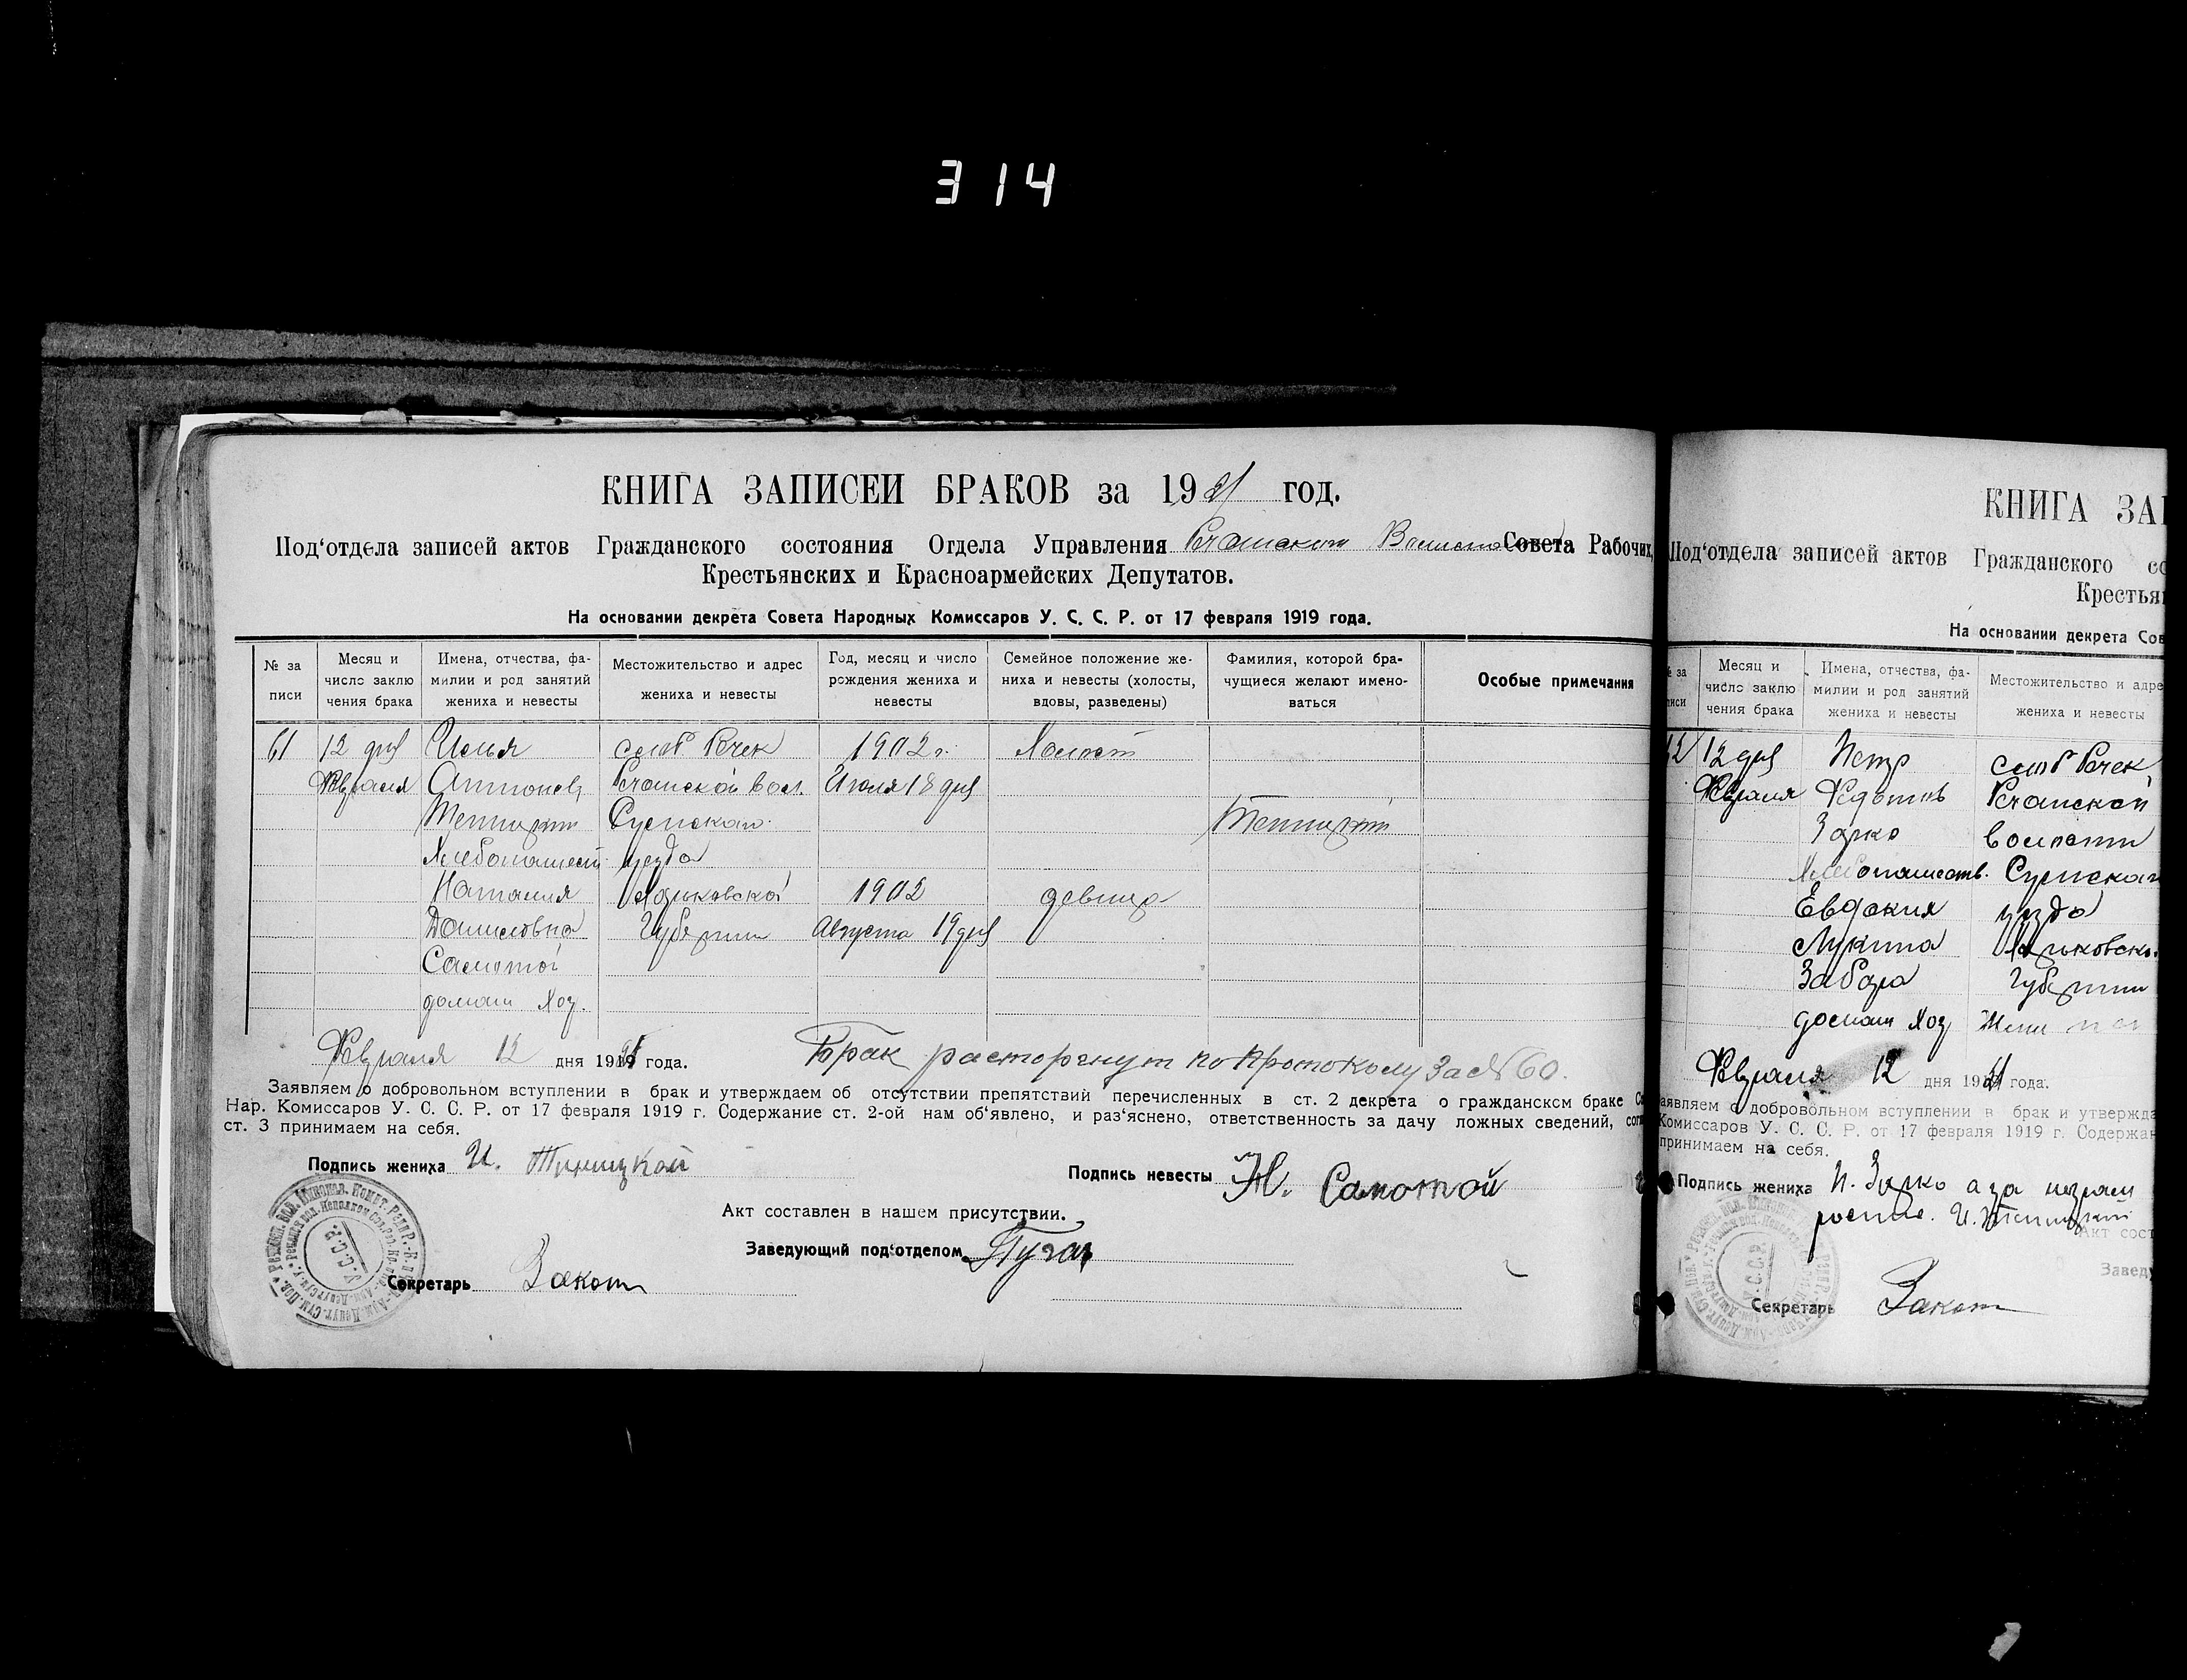 314
КНИГА ЗАПИСЕЙ БРАКОВ за 1921 год.
Под‘отдела записей актов Гражданского состояния Отдела Управления Совета Рабочих,
Крестьянских и Красноармейских Депутатов.
На основании декрета Совета Народных Комиссаров У. С. С. Р. от 17 февраля 1919 года.
№ за писи
Месяц и число заклю чения брака
Имена, отчества, фа- милии и род занятий жениха и невесты
Местожительство и адрес жениха и невесты
Год, месяц и число рождения жениха и невесты
Семейное положение же- ниха и невесты (холосты, вдовы, разведены)
Фамилия, которой бра- чущиеся желают имено- ваться
Особые примечания
61 12 дня Илья слоб Речек 1902 г. Холост
Февраля Антонов Речанской вол. Июля 18 дня
Сумского
Хлебопашест уезда
Наталия Харьковской 1902 девица
Даниловна Губернии Августа 19 дня
Самотой
домаш хоз.
Февраля 12 дня 1921 года. Брак расторгнут по протоколу за № 60.
Заявляем о добровольном вступлении в брак и утверждаем об отсутствии препятствий перечисленных в ст. 2 декрета о гражданском браке
Нар. Комиссаров У. С. С. Р. от 17 февраля 1919 г. Содержание ст. 2-ой нам об‘явлено, и раз‘яснено, ответственность за дачу ложных сведений,
ст. 3 принимаем на себя.
Подпись жениха И. Подпись невесты Н. Самотой
Акт составлен в нашем присутствии.
Заведующий под‘отделом
Секретарь
У.С.С.Р.
КНИГА ЗАП
Под‘отдела записей актов Гражданского со
Крестьян
На основании декрета Сов
№ за писи
Месяц и число заклю чения брака
Имена, отчества, фа- милии и род занятий жениха и невесты
Местожительство и адре жениха и невесты
62 12 дня Петр слоб Речек
Февраля Федотов Речанской
Зарко волости
Хлебопашеств. Сумского
Евдокия уезда
Лукина Харьковско
Забара Губернии
домаш хоз
Февраля 12 дня 1921 года.
аявляем о добровольном вступлении в брак и утвержда
Комиссаров У. С. С. Р. от 17 февраля 1919 г. Содержан
принимаем на себя.
Подпись жениха П. Зарко а за
Акт сост
Завед
Секретарь
У.С.С.Р.